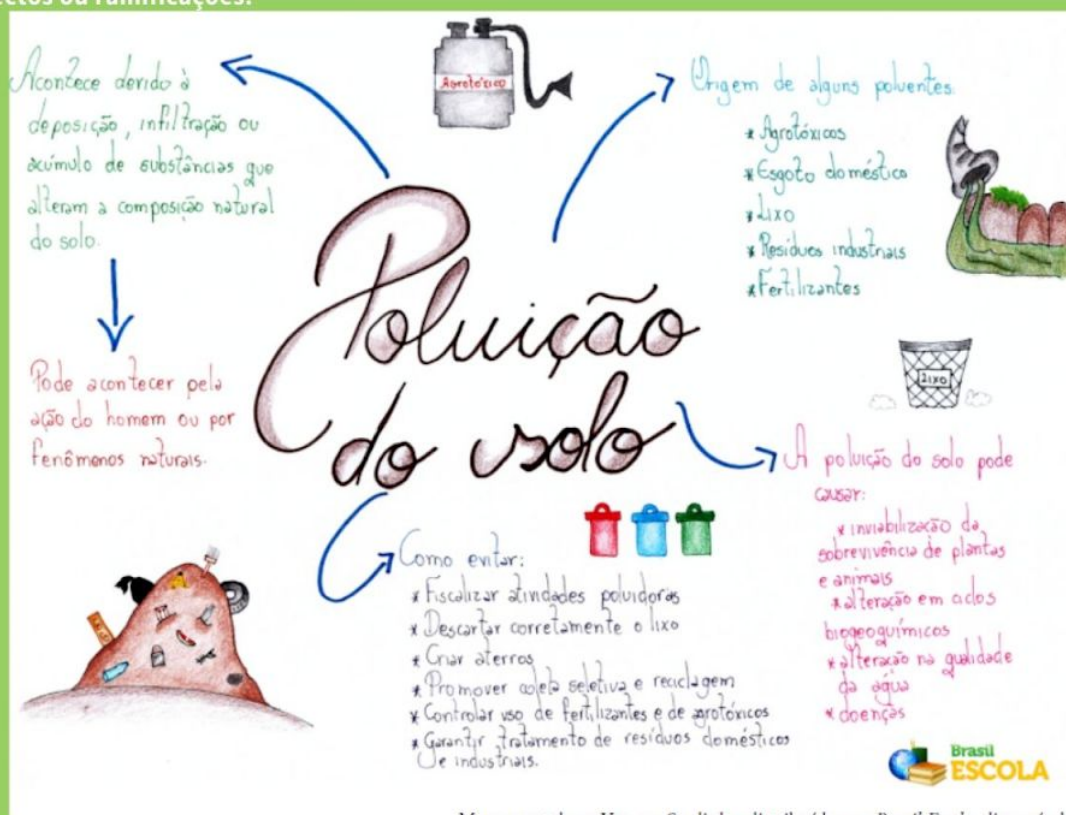 Agrotóxico
Acontece devido à
deposição, infiltração ou
acúmulo de substâncias que
alteram a composição natural
do solo.
Pode acontecer pela
ação do homem ou por
fenômenos naturais.
Poluição
do solo
Origem de alguns poluentes.
* Agrotóxicos
* Esgoto doméstico
* Lixo
* Resíduos industriais
* Fertilizantes
Lixo
A poluição do solo pode
causar:
* inviabilização da
sobrevivência de plantas
e animais
* alteração em ciclos
biogeoquímicos
* alteração na qualidade
da água
* doenças
Como evitar:
* Fiscalizar atividades poluidoras
* Descartar corretamente o lixo
* Criar aterros
* Promover coleta seletiva e reciclagem
* Controlar uso de fertilizantes e de agrotóxicos
* Garantir tratamento de resíduos domésticos
e industriais.
Brasil
ESCOLA